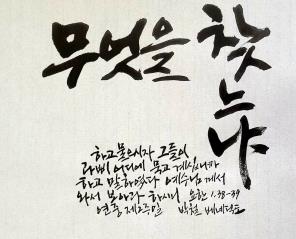 무엇을 찾느냐
하고 물으시자 그들이
라삐 어디에 묵고 계십니까
하고 말하였다 예수님께서
와서 보아라 하시니 요한 1.38-39
연중 제2주일 박철 베네딕토